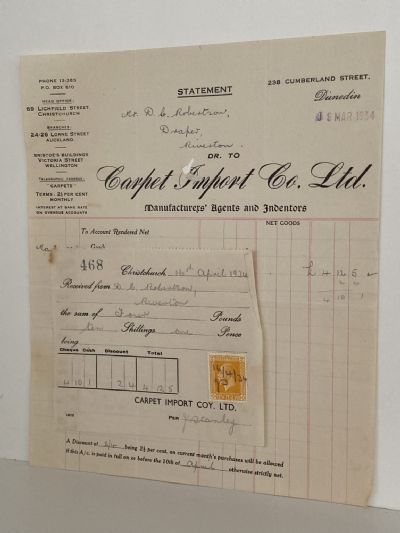 PHONE 13-385
P.O. BOX 610
HEAD OFFICE:
69 LICHFIELD STREET,
CHRISTCHURCH
BRANCHES:
24-26 LORNE STREET
AUCKLAND.
BRISTOE'S BUILDINGS
VICTORIA STREET
WELLINGTON
TELEGRAPHIC ADDRESS:
"CARPETS"
TERMS: 2½ PER CENT
MONTHLY
INTEREST AT BANK RATE
ON OVERDUE ACCOUNTS
STATEMENT
238 CUMBERLAND STREET,
Dunedin
MAR 1934
Mr D. C. Robertson,
Draper,
Riverton.
DR. TO
Carpet Import Co. Ltd.
Manufacturers' Agents and Indentors
NET GOODS
To Account Rendered Net
£ 4 12 5
2 4
4 10 1
468
Christchurch 14th April 1934
Received from D. C. Robertson,
Riverton
the sum of Four Pounds
ten Shillings one Pence
being
Cheque Cash Discount Total
4 10 1 2 4 4 12 5
14/4/34
CARPET IMPORT COY. LTD.
PER
A Discount of 2/4 being 2½ per cent. on current month's purchases will be allowed
if this A/c. is paid in full on or before the 20th of April otherwise strictly net.